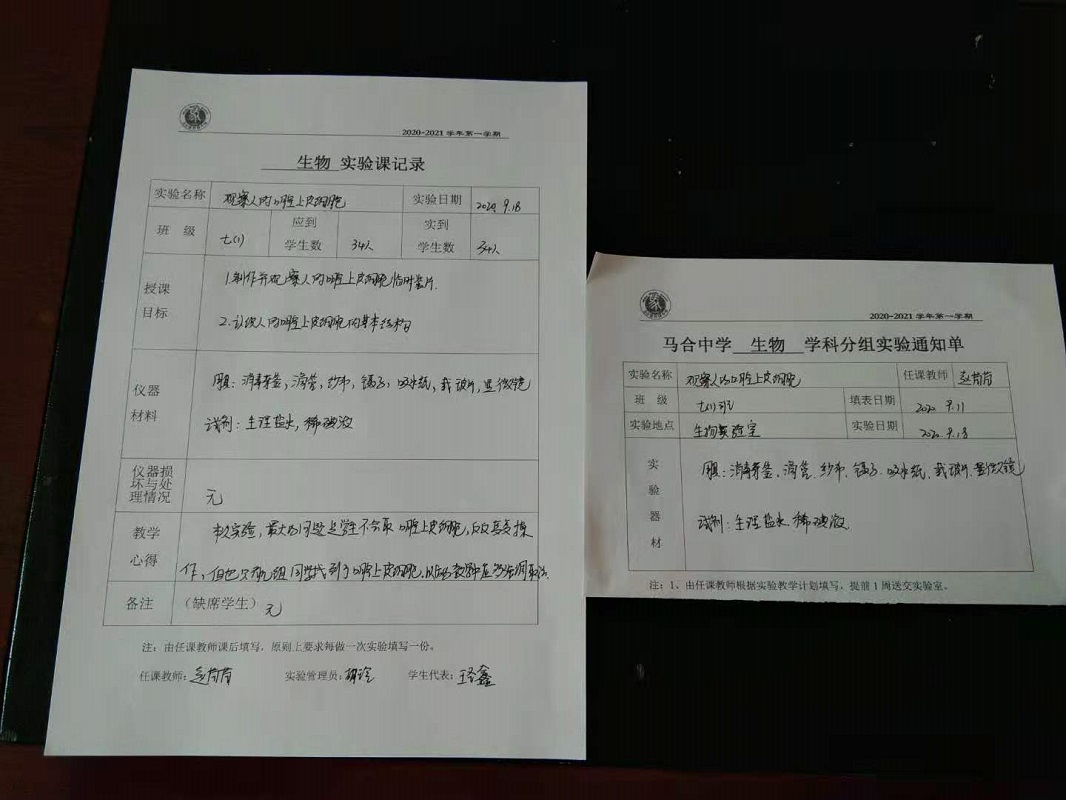 2020-2021 学年第一学期
生物 实验课记录
实验名称 观察人的口腔上皮细胞 实验日期 2020 9.18
班 级 七(1) 应到学生数 34人 实到学生数 34人
授课目标
1.制作并观察人的口腔上皮细胞临时装片.
2.认识人的口腔上皮细胞的基本结构
仪器材料
用具:消毒牙签,滴管,纱布,镊子,吸水纸,载玻片,显微镜
试剂:生理盐水,稀碘液
仪器损坏与处理情况
无
教学心得
本次实验,最大的问题是学生不会取口腔上皮细胞,反复多操
作,但也只有组同学找到了口腔上皮细胞,以后的教学中应当强调
备注 (缺席学生) 无
注:由任课教师课后填写,原则上要求每做一次实验填写一份。
任课教师: 实验管理员: 学生代表:
2020-2021 学年第一学期
马合中学 生物 学科分组实验通知单
实验名称 观察人的口腔上皮细胞 任课教师
班 级 七(1)班 填表日期 2020 9.11
实验地点 生物实验室 实验日期 2020 9.18
实验器材
用具:消毒牙签、滴管、纱布、镊子、吸水纸、载玻片、显微镜
试剂:生理盐水 稀碘液
注:1、由任课教师根据实验教学计划填写,提前 1 周送交实验室。